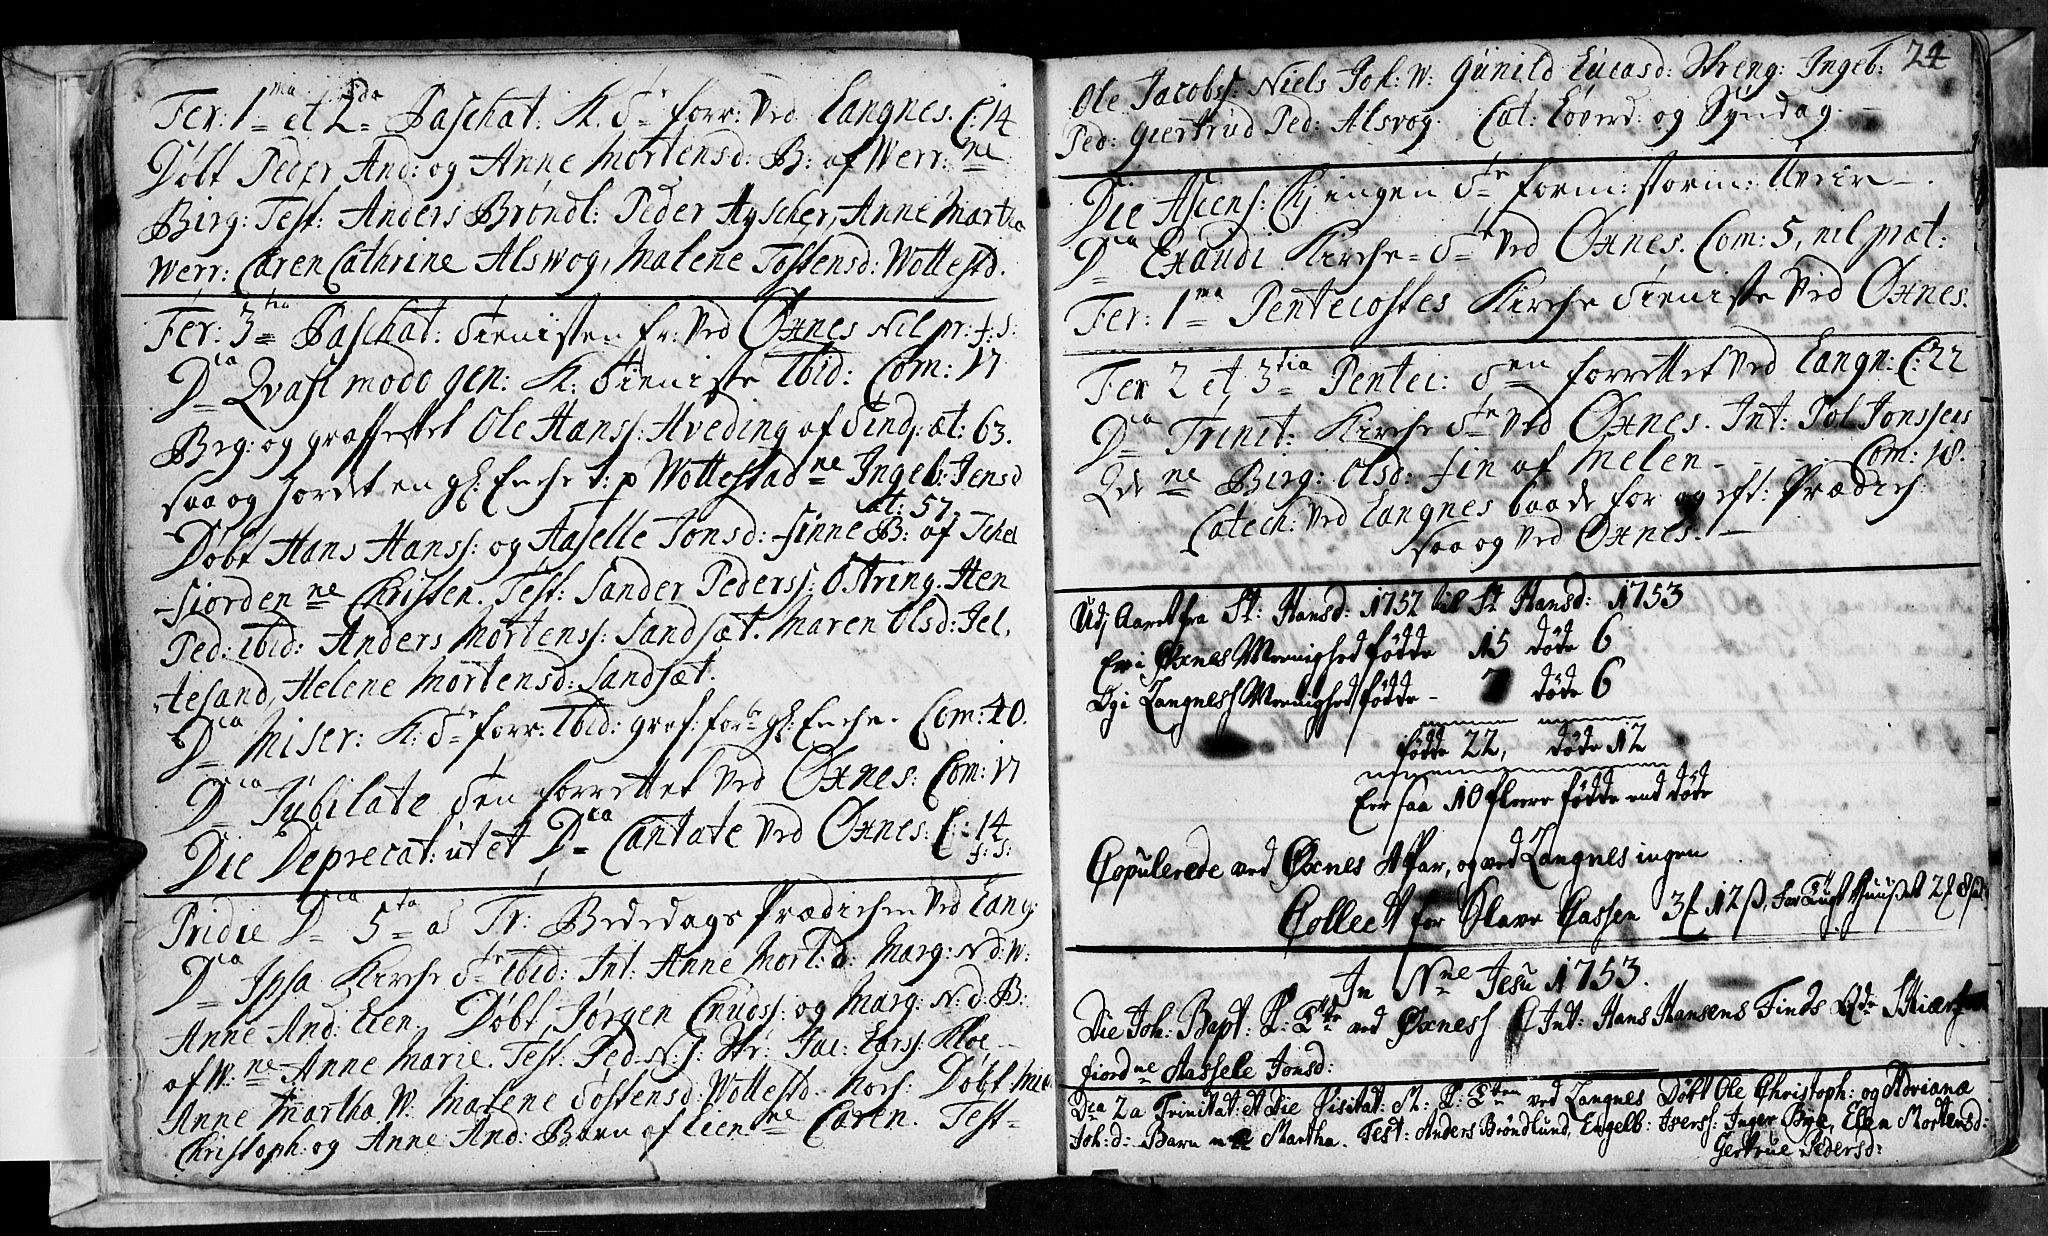 Fer: 1ma et 2da Paschat: K. dr forr: ved Langnes. C: 14
Døbt Peder And: og Anne Mortensd: B: af Werr: ne
Birg: Test: Anders Brøndl: Peder Hyscher, Anne Martha
Werr: Caren Cathrine Alswog, Malene Tostensd: Wottestd.
Fer: 3tia Paschat: dienisten fr: ved Oxnes Nil pr: f: s:
Dca Qvasi modo gen: K: dieniste Ibid: Com: 17
Beg: og graffestet Ole Hanss: Hveding af Sind: æt: 63.
saa og Jordet en gl: Enche t: p Wottestad ne Ingeb: Jensd
æt: 57.
Døbt Hans Hanss: og Haselle Jonsd: finne B: af Schel
-fiorden ne Christen. Test: Sander Pederss: Ostring. Hen
Ped: ibid: Anders Mortenss: Sandsæt. Maren Olsd: Jel,
tesand, Helene Mortensd: Sandsæt.
Dca Miser: K: dr forr: Ibid: graf: forbe gl: Enche. Com: 40.
Dca Jubilate den forrettet ved Oxnes: Com: 17
Die Deprecat: ut et Dca Cantate ved Oxnes: C: 14
f: s:
Pridie Dca 5ta a Tr: Bededags Prædichen ved Lang:
Dca Ipsa Kirche dte ibid: Int: Anne Mort: d: Marg: N: d: W:
Anne And: Lien. Døbt Jørgen Cnudss: og Marg: N: d: B:
af W: ne Anne Marie. Test: Ped: N: s: Str: Jac: Larss: Kloe
Anne Martha W: Malene Tostensd: Wottestd. Hors: Døbt Mic
Christoph: og Anne And: Barn af Lien ne Caren. Test-
24
Ole Jacobss: Niels Joh: W: Gunild Lucasd: Streng: Ingeb:
Ped: Giertrud Ped: Alsvog. Cat: Løverd: og Syndag.
Die Ascens: Chj ingen dte form: storm: Uveir.
Dca Exaudi Kirche-dte ved Oxnes. Com: 5, nil præt:
Fer: 1ma Pentecostes Kirche dieniste ved Oxnes.
Fer 2 et 3tia Pentec: den forrettet ved Langn: C: 22
Dca Trinit: Kirche dte ved Oxnes. Int: Pol Jonssens
Qde ne Birg: Olsd: fin af Melen - - - Com: 18.
Catech: ved Langnes baade for og eft: Prædich:
saa og ved Oxnes.
Udj Aaret fra St: Hansd: 1752 til St Hansd: 1753
Er i Øxnes Meenighed fødde 15 døde 6
Og i Langness Meenighed fødde - 7 døde 6
fødde 22, døde 12
Eer saa 10 fleere fødde end døde
Copulerede ved Øxnes 1 Par, og ved Langnes ingen
Collect for Slave Cassen 3 12 ß, for Tugt Huuset 2 8 ß
In Nne Jesu 1753.
Die Joh: Bapt: K: Tte ved Øxness Int: Hans Hansens Finds Qde Skier
fiord ne Hassele Jonsd:
Dca 2a Trinitat: et Die Visitat: M: K: Tten ved Langnes Døbt Ole Christoph: og Adriana
Joh: d: Barn n ne Martha. Test: Anders Brøndlund, Engelb: Iverss: Inger Bye, Ellen Mortensd:
Gertrue Pedersd: